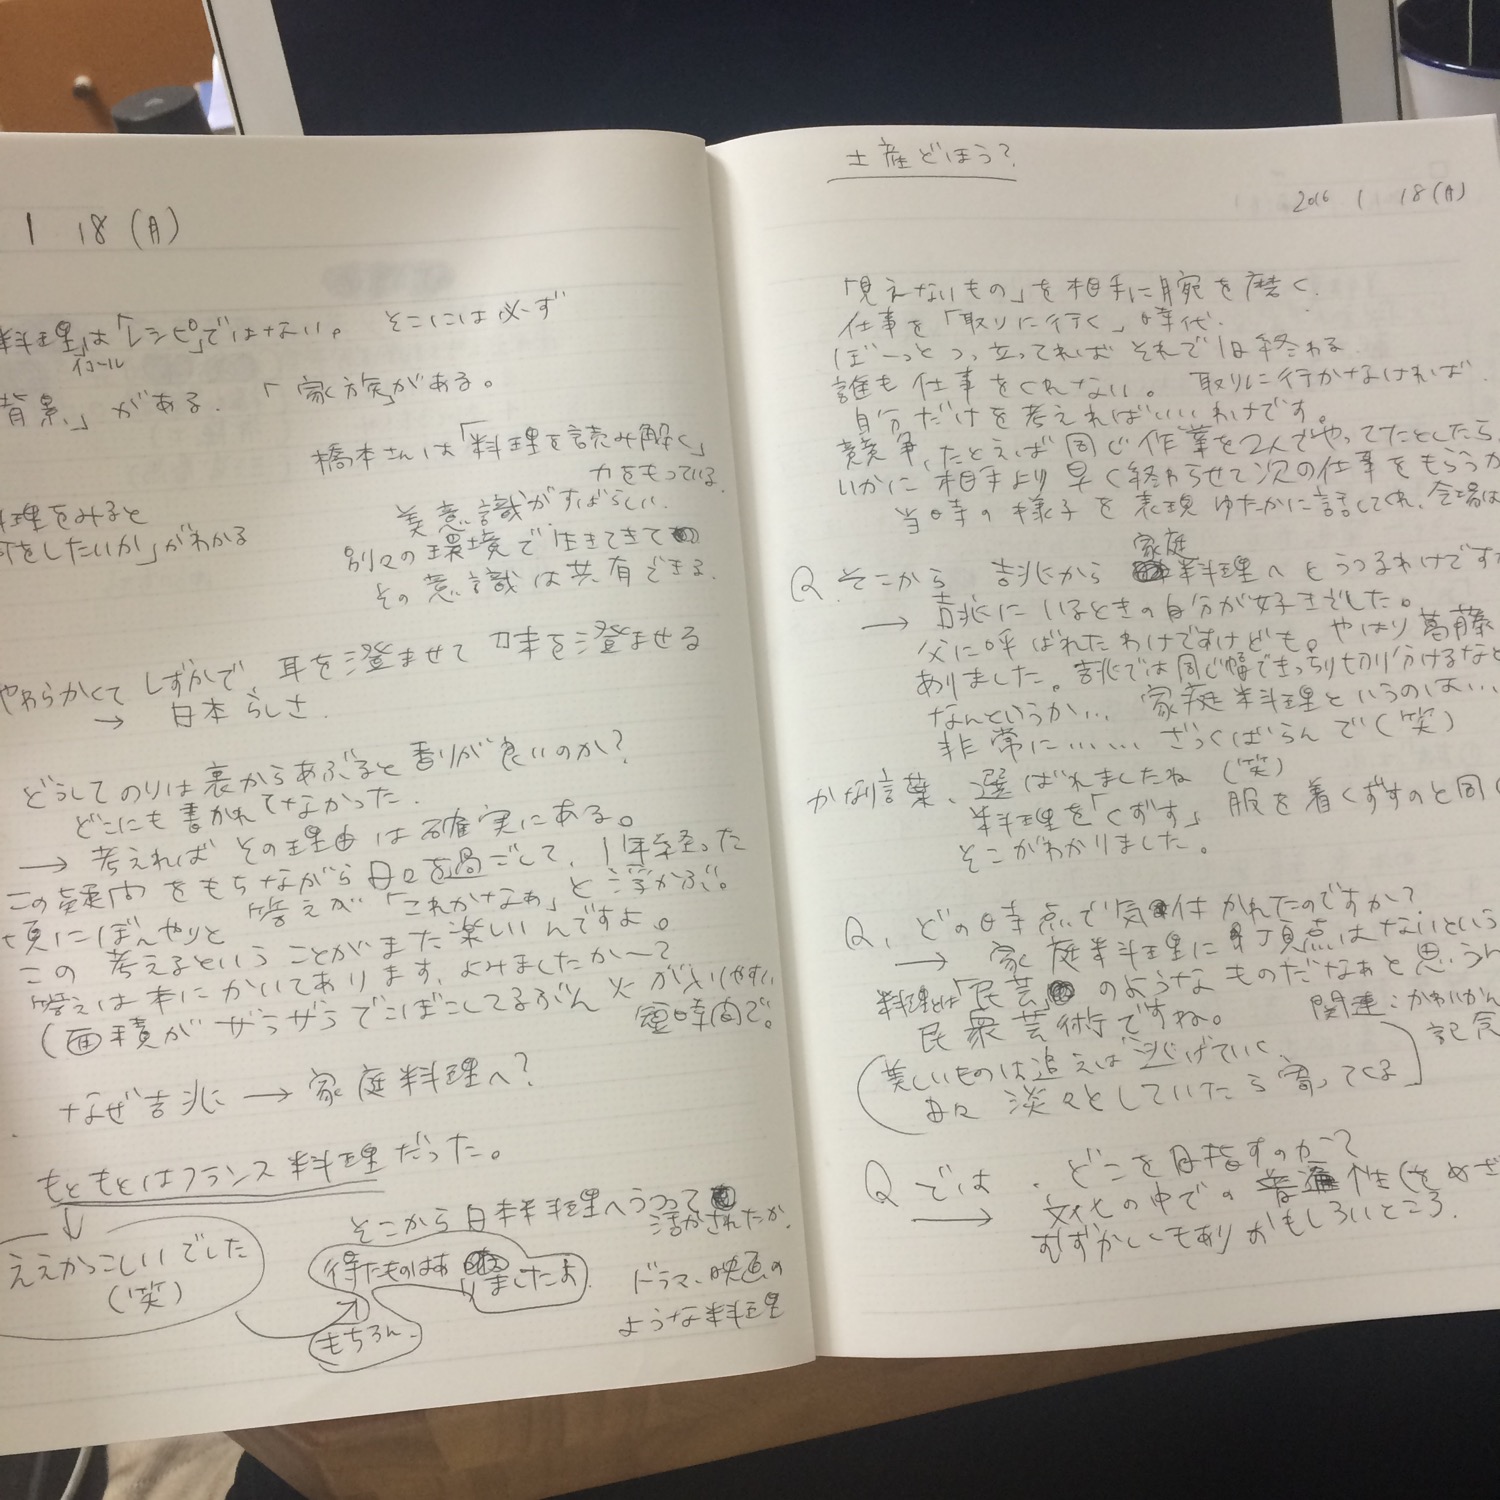 1 18 (月)
料理」は「レシピ」ではない。 そこには必ず
イコール
背景」がある. 「家族」がある。
橋本さんは「料理を読み解く」
力をもっている.
理をみると
何をしたいか」がわかる
美意識がすばらしい.
別々の環境で生きてきて
その意識は共有できる.
やわらかくて しずかで、耳を澄ませて 味を澄ませる
→ 日本らしさ.
どうしてのりは裏からあぶると香りが良いのか?
どこにも書かれてなかった.
→ 考えれば その理由は確実にある。
この疑問をもちながら日々を過ごして、1年経った
頃にぼんやりと 答えが「これかなぁ」と浮かぶ。
この 考えるということがまた楽しいんですよ。
答えは本にかいてあります、よみましたか〜?
(面積が ザラザラ でこぼこしてるぶん 火が入りやすい
短時間で。
なぜ吉兆に → 家庭料理へ?
もともとはフランス料理だった。
↓
ええかっこしいでした
(笑)
そこから日本料理へうつって
活かされたか.
得たものはあ ましたよ.
もちろん.
ドラマ、映画の
ような料理
土産どほう?
2016 1 18(月)
「見えないもの」を相手に腕を磨く.
仕事を「取りに行く」時代.
ぼーっとつっ立ってれば それで1日終わる
誰も仕事をくれない。 取りに行かなければ.
自分だけを考えればいいわけです。
競争、たとえば同じ作業を2人でやってたとしたら、
いかに相手より早く終わらせて次の仕事をもらうか
当時の様子を表現ゆたかに話してくれ、会場は
Q そこから 吉兆から 家庭料理へとうつるわけですが
→ 吉兆にいるときの自分が好きでした。
父に呼ばれたわけですけども。やはり葛藤
ありました。吉兆では同じ幅できっちり切り分けるなど
なんというか… 家庭料理というのは…
非常に…… ざっくばらんで(笑)
かなり言葉、選ばれましたね (笑)
料理を「くずす」 服を着くずすのと同じ
そこがわかりました。
Q、どの時点で気付かれたのですか?
→ 家庭料理に頂点はないという
料理とは「民芸」のようなものだなぁと思うん
民衆芸術ですね。
関連:かわいかん
記念
(美しいものは追えば逃げていく
日々 淡々としていたら寄ってくる)
Q では 、どこを目指すのか?
→ 文化の中での普遍性(をめざ
むずかしくもあり おもしろいところ.